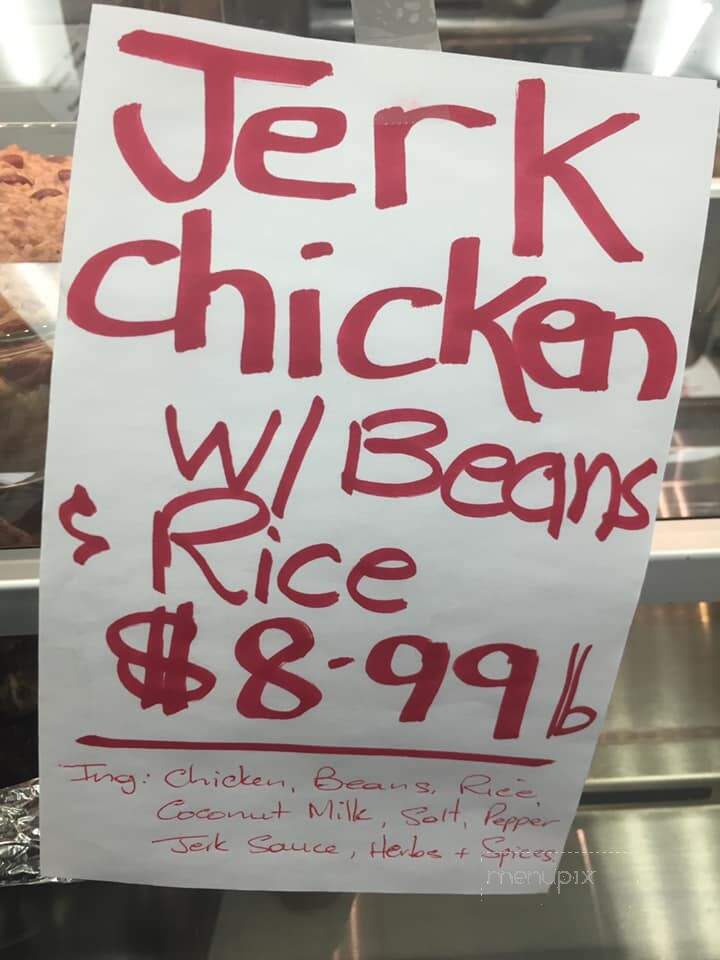 Jerk
chicken
w/ Beans
& Rice
$8.99 lb
Ing: Chicken, Beans, Rice,
Coconut Milk, Salt, Pepper
Jerk Sauce, Herbs + Spices.
menupix